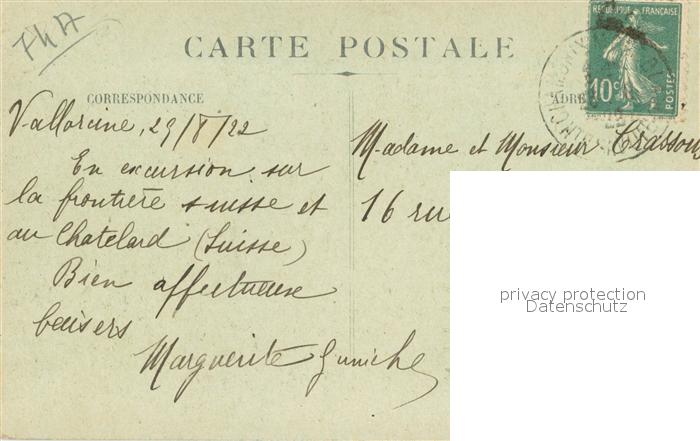 CARTE POSTALE
CORRESPONDANCE
Vallorcine, 29/8/22
En excursion sur
la frontière suisse et
au Chatelard (Suisse)
Bien affectueuse
baisers
Marguerite
REPUBLIQUE FRANÇAISE
10c
POSTES
ADRE
Madame et Monsieur
16 ru
privacy protection
Datenschutz